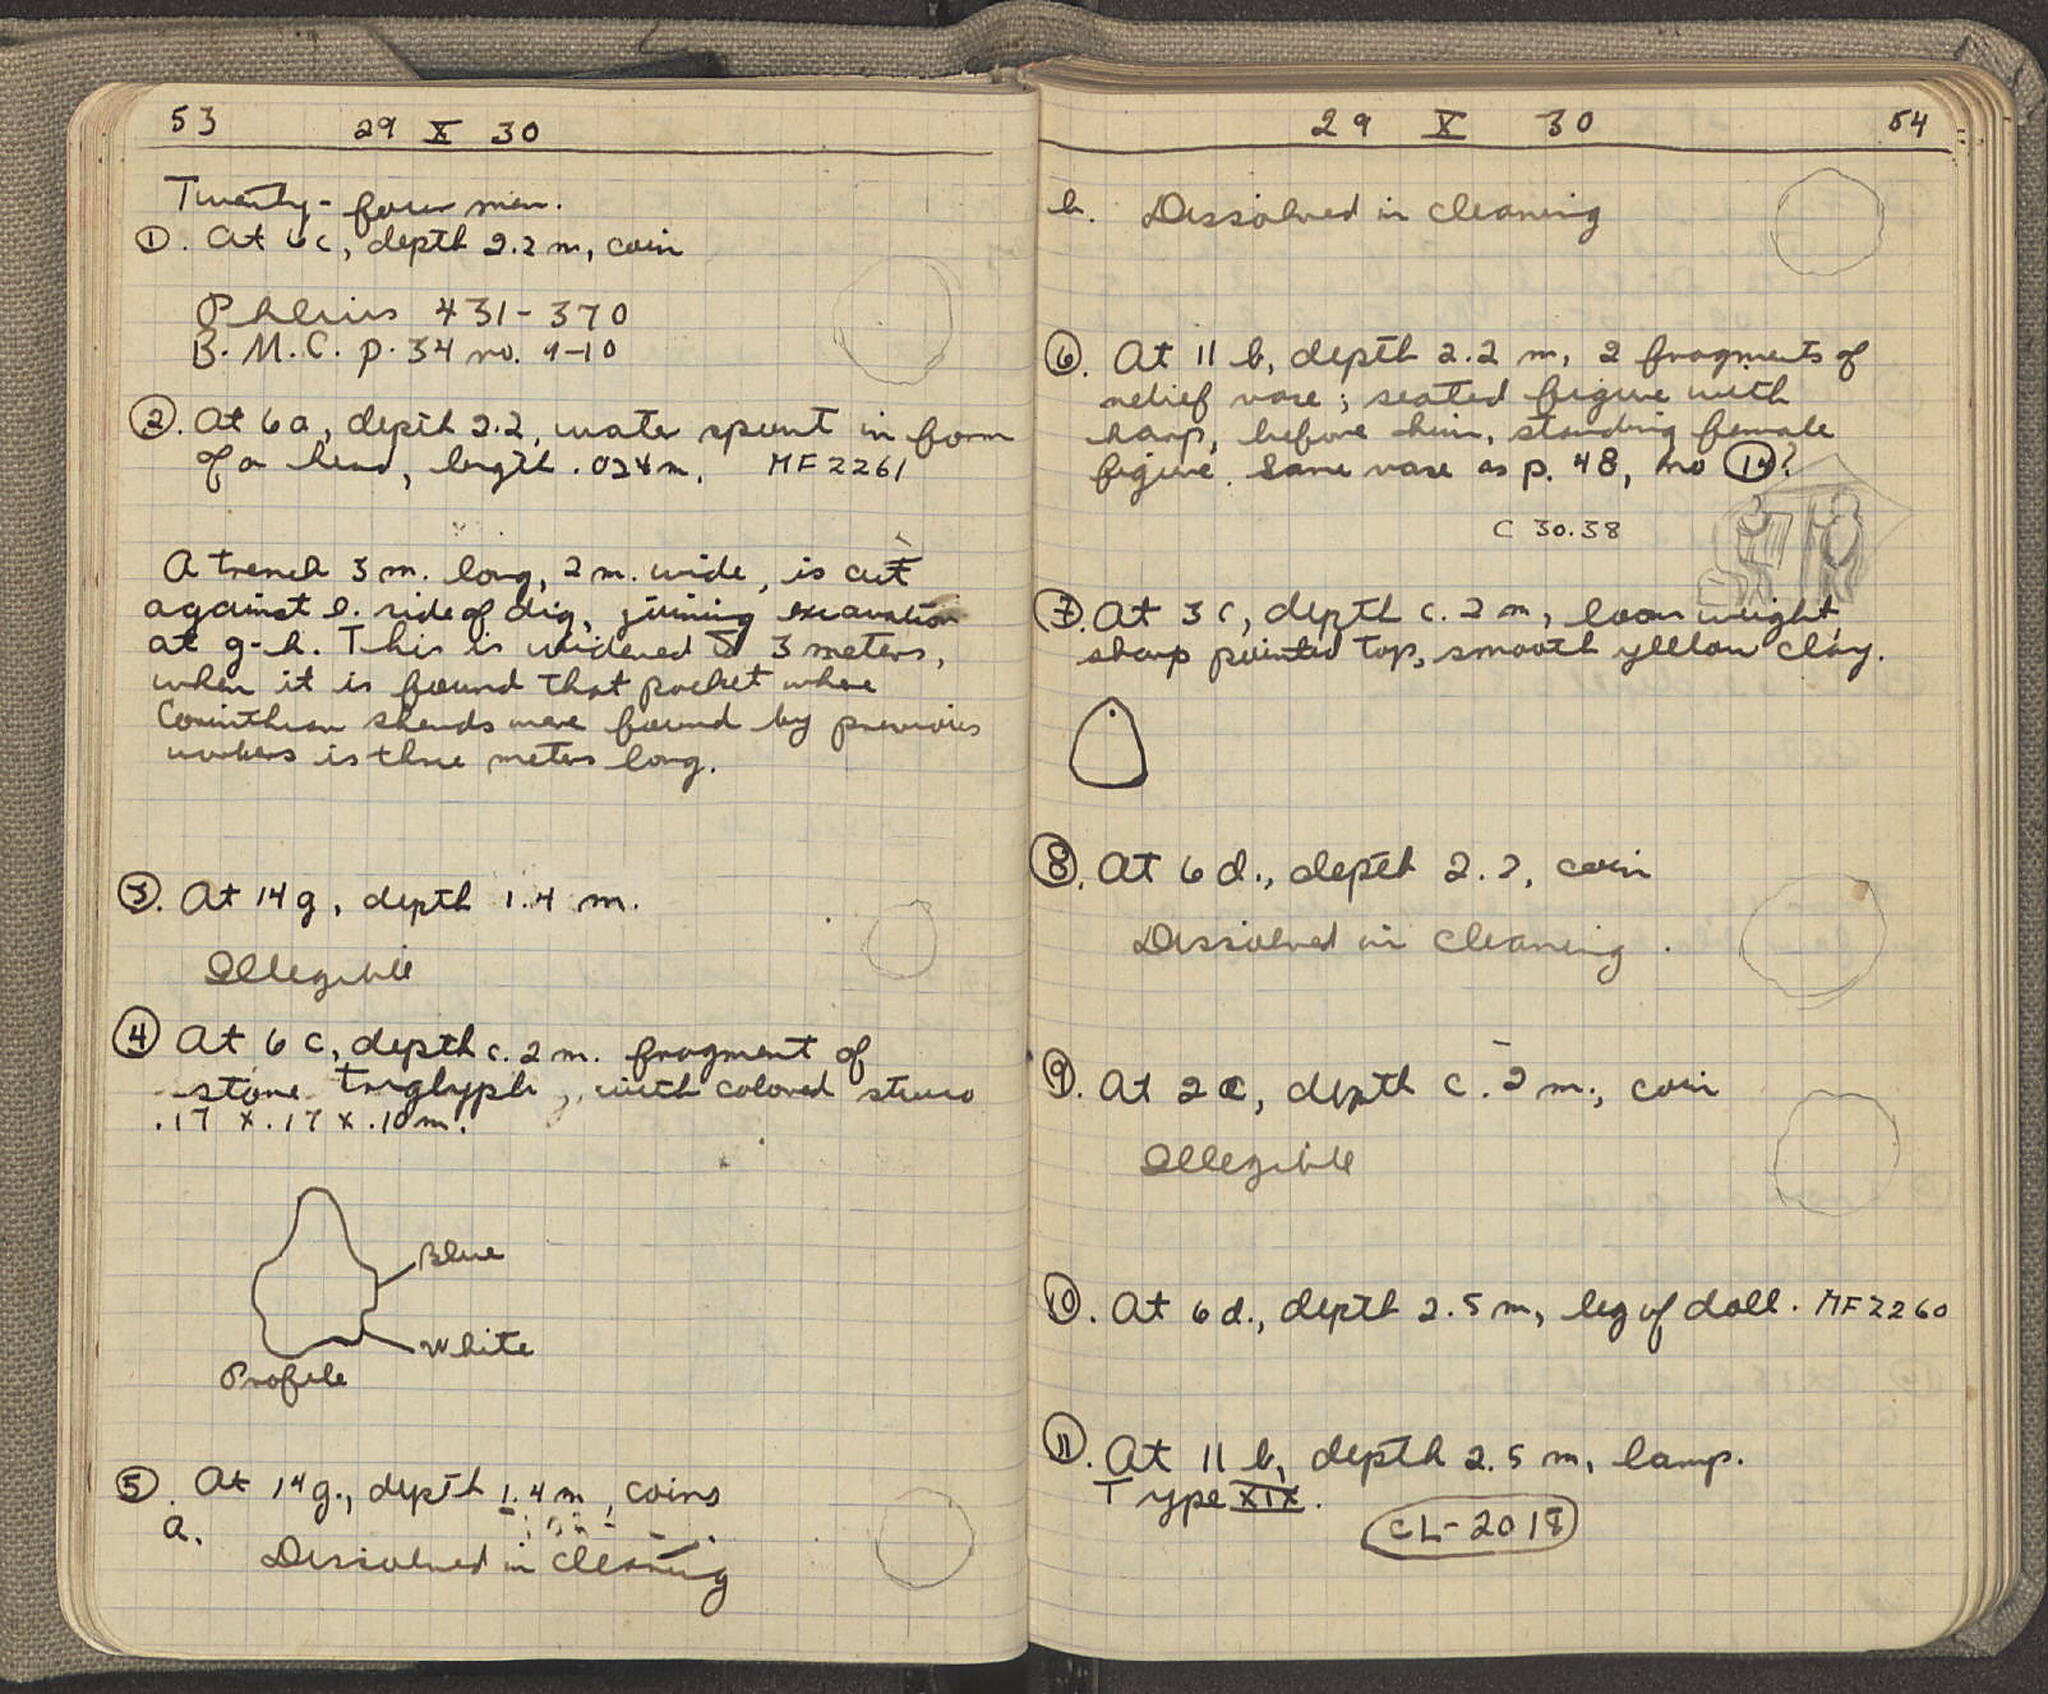 53 29 X 30
Twenty-four men.
1. At 6c, depth 2.2 m, coin
Phlius 431-370
B.M.C. p. 34 no. 9-10
2. At 6a, depth 2.2, water spout in form
of a head, length .024 m. MF 2261
A trench 3 m. long, 2 m. wide, is cut
against e. side of dig, joining excavation
at g-h. This is widened to 3 meters,
when it is found that pocket where
Corinthian sherds were found by previous
workers is three meters long.
3. At 14g, depth 1.4 m.
Illegible
4 At 6 c, depth c. 2 m. fragment of
stone triglyph, with colored stucco
.17 x .17 x .10 m.
Blue
White
Profile
5. At 14g., depth 1.4 m, coins
a.
Dissolved in cleaning
29 X 30 54
b. Dissolved in cleaning
6. At 11 b, depth 2.2 m, 2 fragments of
relief vase; seated figure with
harp, before him, standing female
figure. Same vase as p. 48, no 14?
C 30.38
7. At 3c, depth c. 2 m, loom weight,
sharp pointed top, smooth yellow clay.
8. At 6 d., depth 2.2, coin
Dissolved in cleaning.
9. At 2c, depth c. 2 m., coin
Illegible
10. At 6d., depth 2.5 m, leg of doll. MF 2260
11. At 11 b, depth 2.5 m, lamp.
Type XIX.
CL-2018